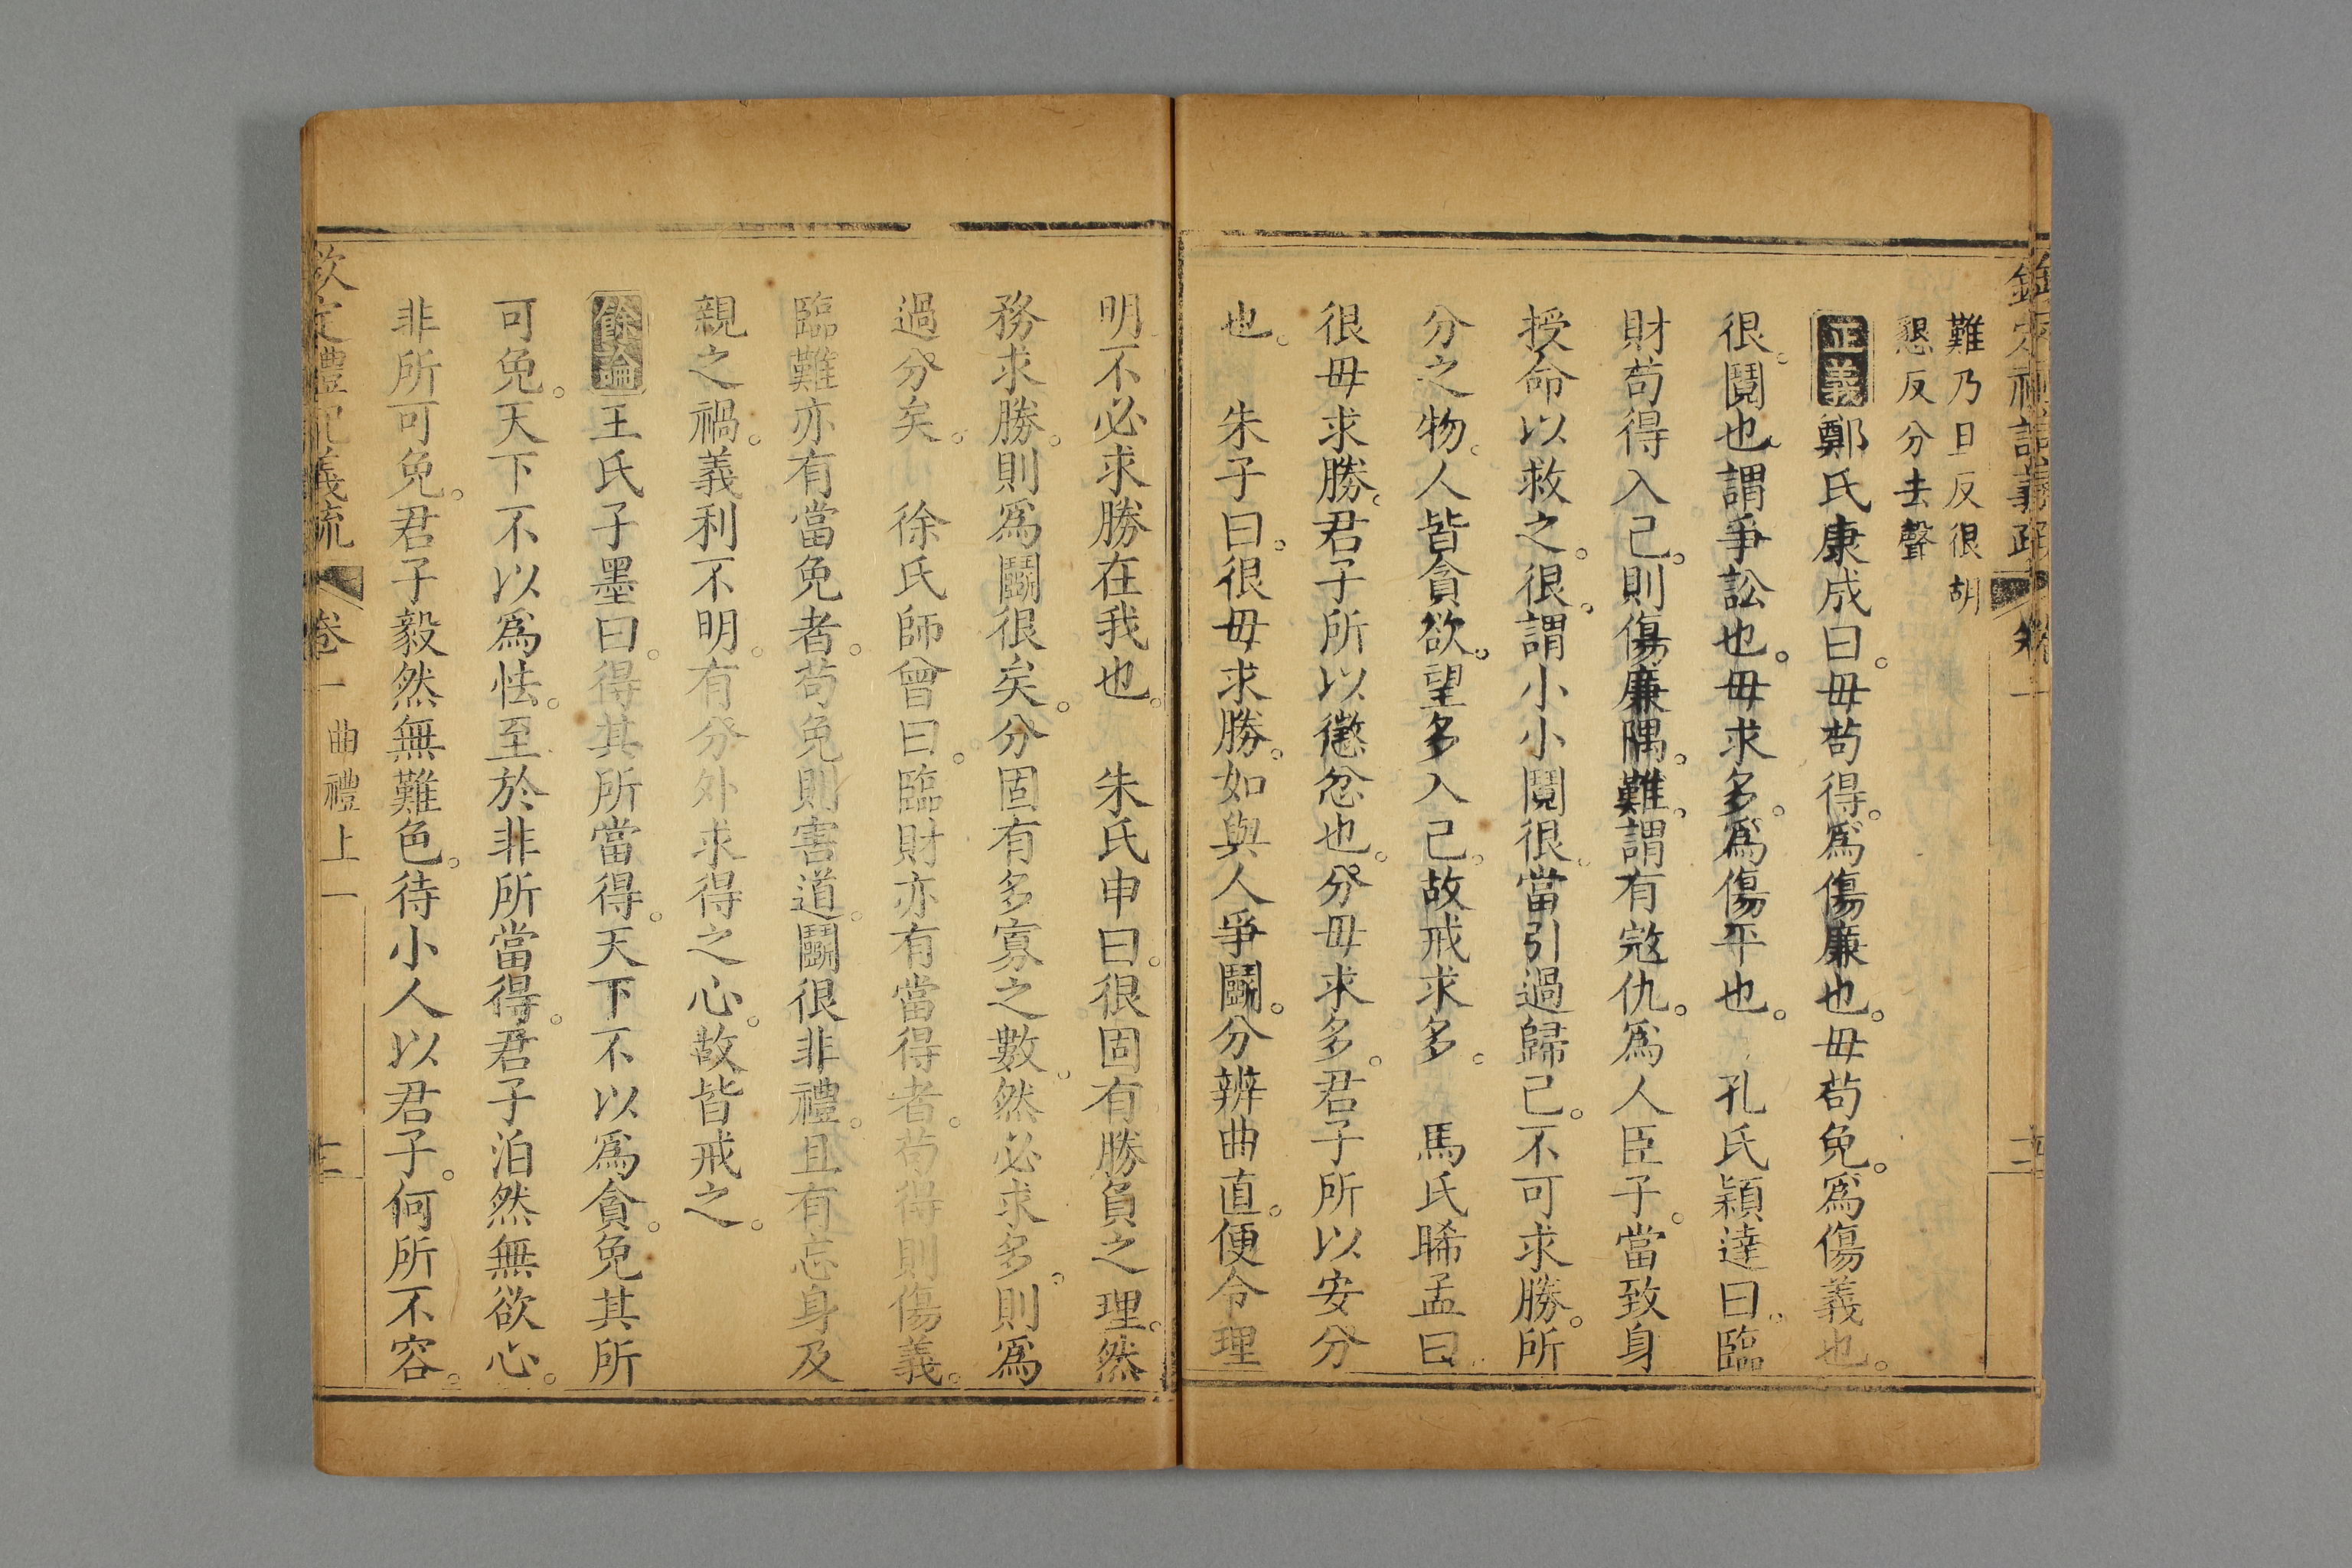 難乃旦反很胡
懇反分去聲
正義鄭氏康成曰。毋苟得。爲傷廉也。毋苟免。爲傷義也。
很。鬩也。謂爭訟也。毋求多。爲傷平也。　孔氏穎達曰。臨
財苟得入己。則傷廉隅。難。謂有寇仇。爲人臣子。當致身
授命以救之。很。謂小小鬩很。當引過歸己。不可求勝。所
分之物。人皆貪欲。望多入己。故戒求多。　馬氏睎孟曰。
很毋求勝。君子所以懲忿也。分毋求多。君子所以安分
也。　朱子曰。很毋求勝。如與人爭鬭。分辨曲直。便令理
明不必求勝在我也。　朱氏申曰。很固有勝負之理。然
務求勝。則爲鬭很矣。分固有多寡之數。然必求多。則爲
過分矣。　徐氏師曾曰。臨財亦有當得者。苟得則傷義。
臨難亦有當免者。苟免則害道。鬭很非禮。且有忘身及
親之禍。義利不明。有分外求得之心。故皆戒之。
餘論王氏子墨曰。得其所當得。天下不以爲貪。免其所
可免。天下不以爲怯。至於非所當得。君子泊然無欲心。
非所可免。君子毅然無難色。待小人以君子。何所不容。
欽定禮記義疏　卷一　曲禮上一